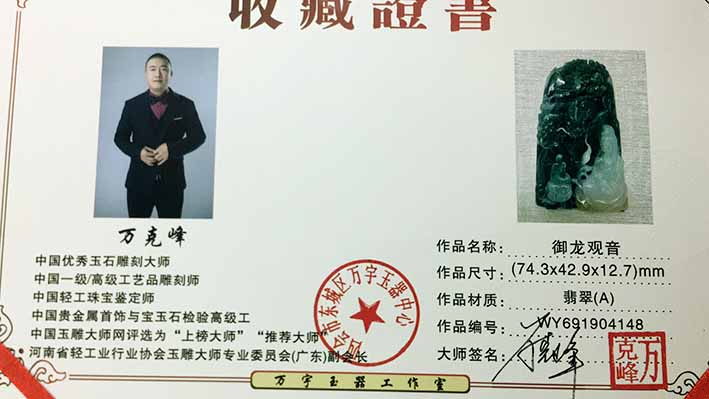 收藏證書
万克峰
中国优秀玉石雕刻大师
中国一级/高级工艺品雕刻师
中国轻工珠宝鉴定师
中国贵金属首饰与宝玉石检验高级工
中国玉雕大师网评选为“上榜大师”“推荐大师”
河南省轻工业行业协会玉雕大师专业委员会(广东)副会长
会市东城区万宇玉器中心
作品名称: 御龙观音
作品尺寸: (74.3x42.9x12.7)mm
作品材质: 翡翠(A)
作品编号: WY691904148
大师签名:
万克峰
万宇玉器工作室